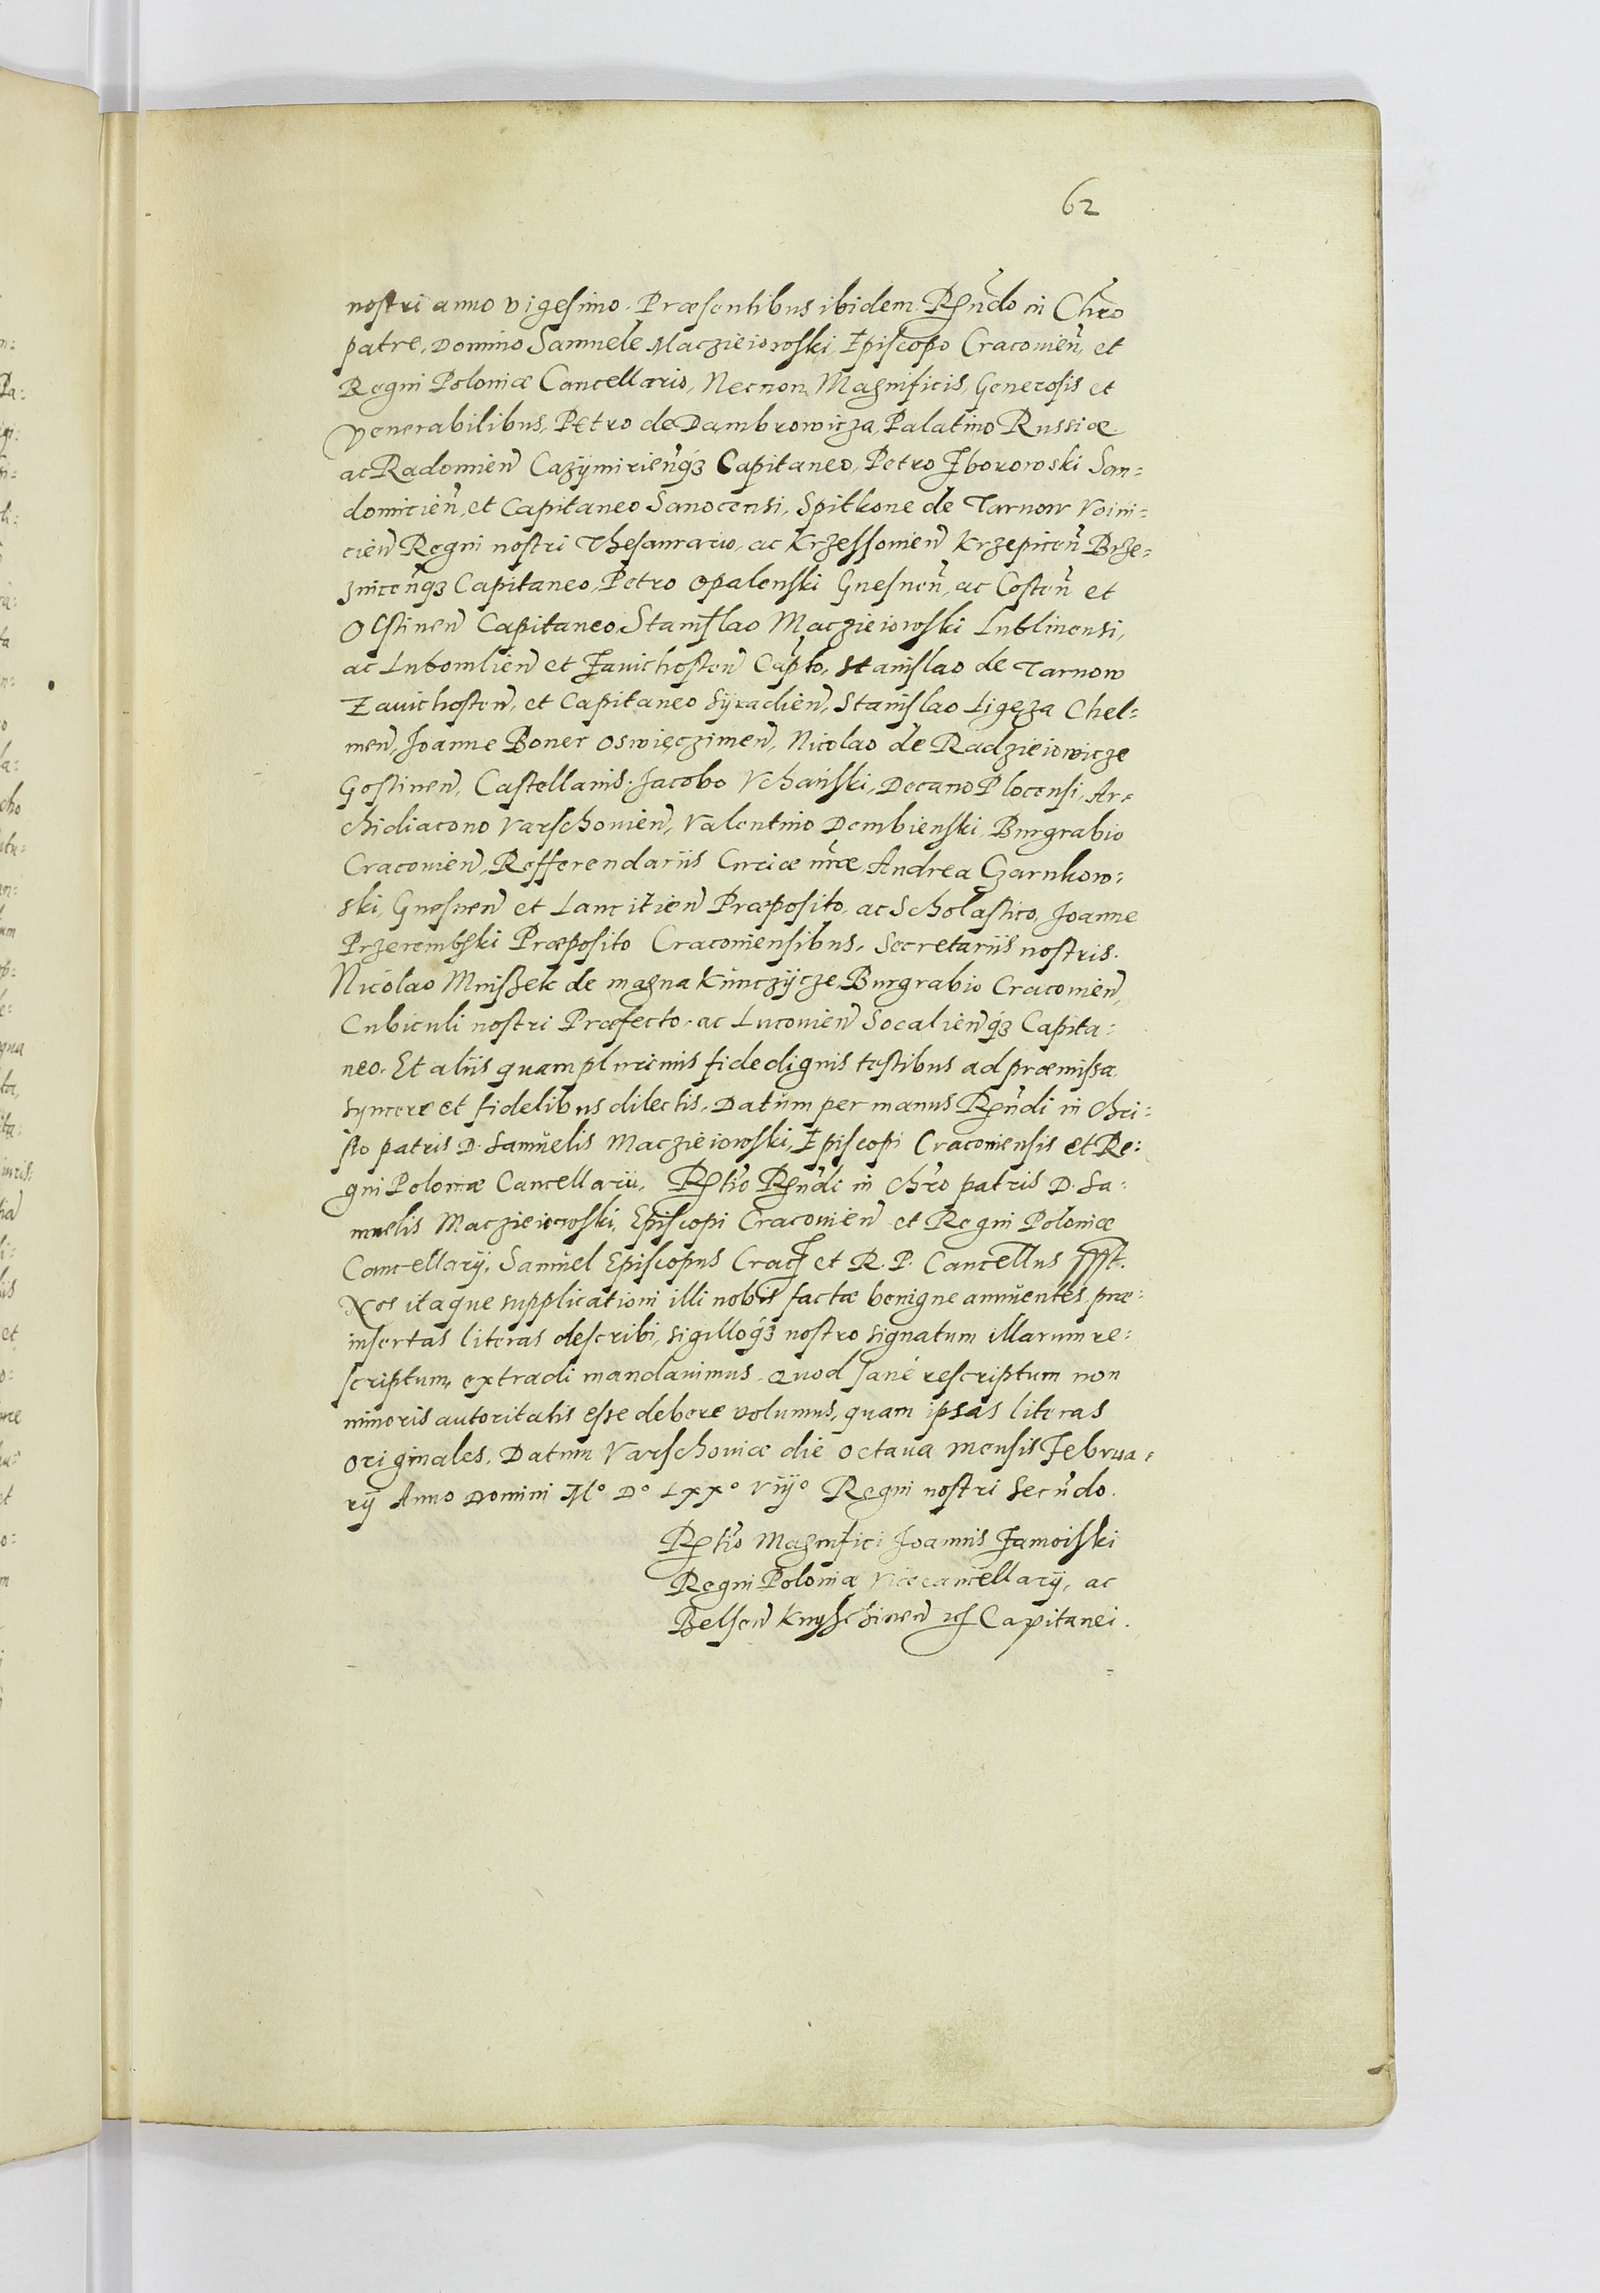 62
nostri anno vigesimo. Præsentibus ibidem. Rñdo in Chro
patre, Domino Samuele Maczieiowski, Episcopo Cracovieñ, et
Regni Poloniæ Cancellario, Necnon Magnificis, Generosis et
Venerabilibus, Petro de Dambrowicza, Palatino Russiæ.
ac Radomieñ Cazÿmirieñq3 Capitaneo, Petro Zborowski San=
domirieñ, et Capitaneo Sanocensi, Spitkone de Tarnow Voini=
cieñ Regni nostri Thesaurario, ac Krzessovieñ Krzepiceñ Brze=
zniceñq3 Capitaneo, Petro Opalenski Gnesneñ, ac Costeñ et
Olstineñ Capitaneo, Stanislao Maczieiowski Lublinensi,
ac Lubomlieñ et Zavichosteñ Capto, Stanislao de Tarnow
Zavichosteñ, et Capitaneo Sÿradieñ, Stanislao Ligęza Chel=
meñ, Joanne Boner Oswięczimeñ, Nicolao de Radzieiowicze
Gostineñ, Castellanis. Jacobo Vchański, Decano Plocensi, Ar=
chidiacono Varschovieñ, Valentino Dembienski, Burgrabio
Cracovieñ, Refferendariis Curiæ nræ, Andrea Czarnkow=
ski, Gnesneñ et Lancitieñ Præposito, ac Scholastico, Joanne
Przerembski Præposito Cracoviensibus, Secretariis nostris.
Nicolao Mnissek de magna Kunczÿcze, Burgrabio Cracovieñ,
Cubiculi nostri Præfecto, ac Lucovieñ Socalieñq3 Capita=
neo. Et aliis quam plurimis fide dignis testibus ad præmissa
syncere et fidelibus dilectis. Datum per manus Rñdi in Chri=
sto patris D. Samuelis Maczieiowski, Episcopi Cracoviensis et Re=
gni Poloniæ Cancellarii, Rtio Rñdi in chro patris D. Sa=
muelis Maczieiowski, Episcopi Cracovieñ et Regni Poloniæ
Cancellarÿ, Samuel Episcopus Crac et R. P. Cancellus sst.
Nos itaque supplicationi illi nobis factæ benigne annuentes, præ=
insertas literas describi, sigilloq3 nostro signatum illarum re=
scriptum, extradi mandavimus, quod sane rescriptum non
minoris autoritatis esse debere volumus, quam ipsas literas
originales, Datum Varschoviæ die octava mensis Februa=
rÿ Anno Domini Mo Do Lxxo viijo Regni nostri Secundo.
Rtio Magnifici Joannis Zamoiski
Regni Poloniæ Vicecancellarÿ, ac
Belseñ Knyschineñ Capitanei.